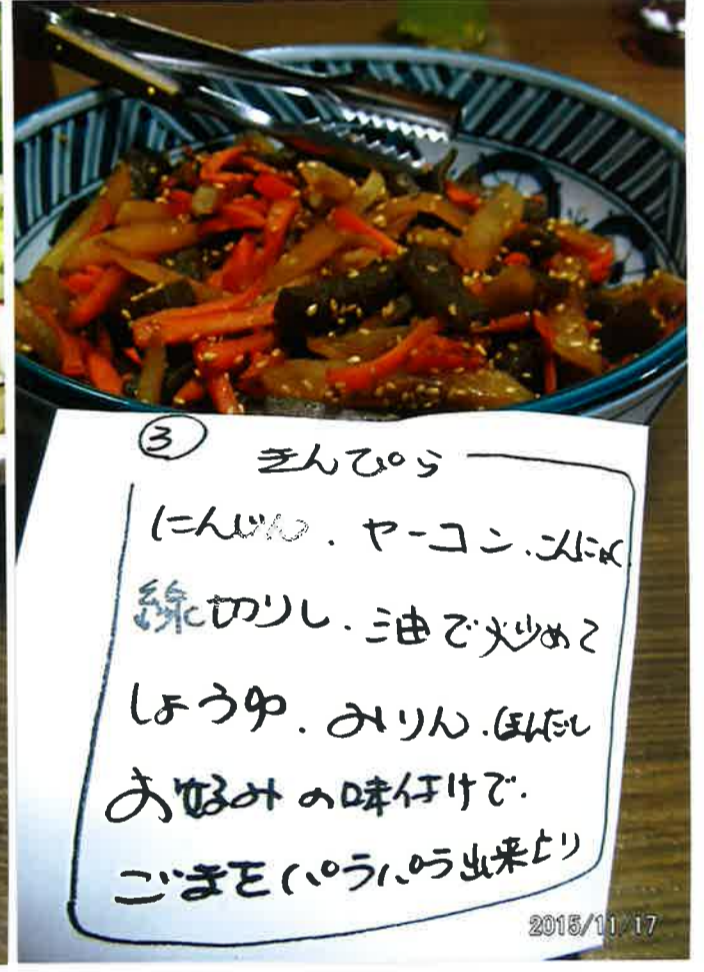 ③ きんぴら
にんじん.ヤーコン.こんにゃく
線切りし.油で炒めて
しょうゆ.みりん.ほんだし
お好みの味付けで.
ごまをパラパラ出来上り
2015/11/17